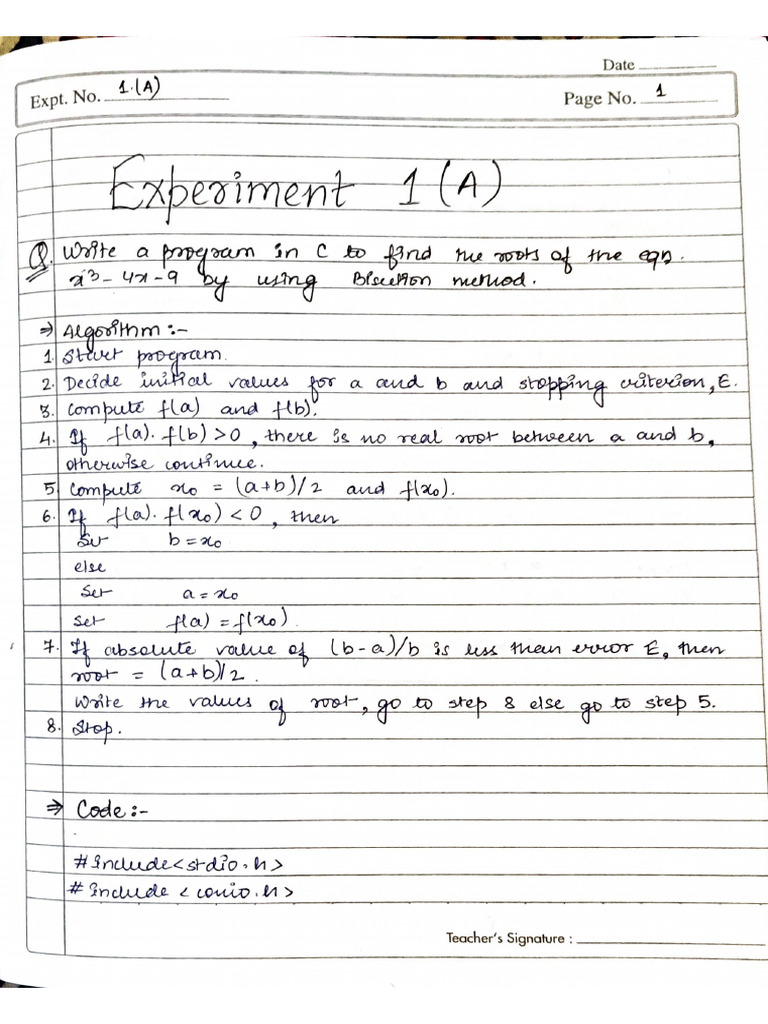 Date
Expt. No. 1.(A)
Page No. 1
Experiment 1 (A)
Q. Write a program in C to find the roots of the eqn.
x³ - 4x - 9 by using Bisection method.
⇒ Algorithm :-
1. Start program.
2. Decide initial values for a and b and stopping criterion, E.
3. Compute f(a) and f(b).
4. If f(a). f(b) > 0, there is no real root between a and b,
otherwise continue.
5. Compute x₀ = (a+b)/2 and f(x₀).
6. If f(a). f(x₀) < 0, then
Set b = x₀
else
Set a = x₀
Set f(a) = f(x₀).
7. If absolute value of (b-a)/b is less than error E, then
root = (a+b)/2.
Write the values of root, go to step 8 else go to step 5.
8. Stop.
⇒ Code :-
#include<stdio.h>
# include <conio.h>
Teacher's Signature :